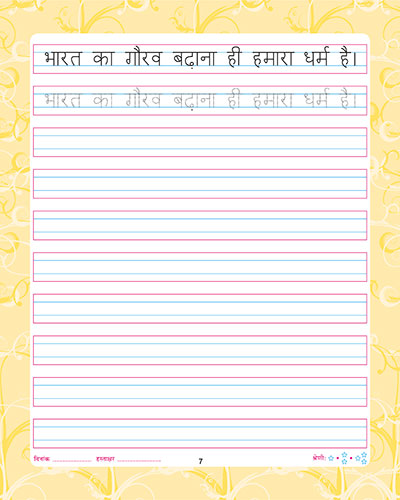 भारत का गौरव बढ़ाना ही हमारा धर्म है।
भारत का गौरव बढ़ाना ही हमारा धर्म है।
दिनांक ........................ हस्ताक्षर ........................ 7 श्रेणी: